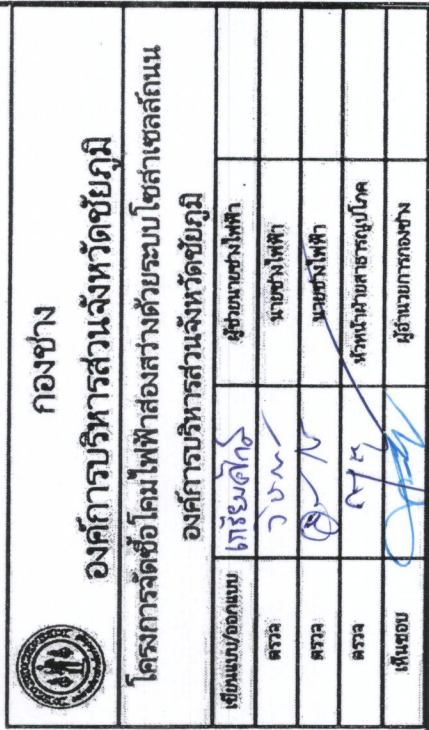 กองช่าง
องค์การบริหารส่วนจังหวัดชัยภูมิ
โครงการจัดซื้อโคมไฟฟ้าส่องสว่างด้วยระบบโซล่าเซลล์ถนน
องค์การบริหารส่วนจังหวัดชัยภูมิ
เขียนแบบ/ออกแบบ เกรียงศักดิ์ ผู้ช่วยนายช่างไฟฟ้า
ตรวจ นายช่างไฟฟ้า
ตรวจ นายช่างไฟฟ้า
ตรวจ หัวหน้าฝ่ายสาธารณูปโภค
เห็นชอบ ผู้อำนวยการกองช่าง